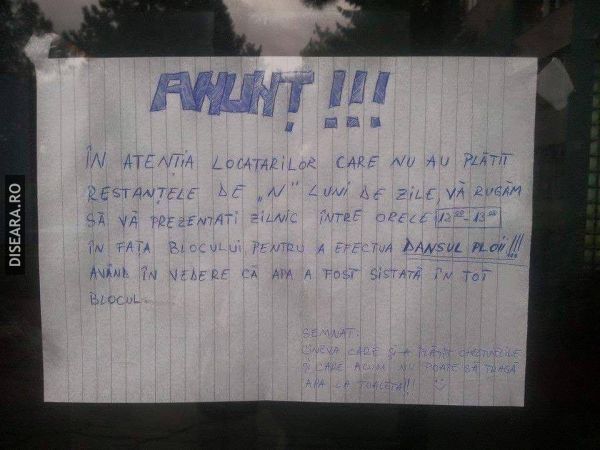 ANUNȚ !!!
ÎN ATENȚIA LOCATARILOR CARE NU AU PLĂTIT
RESTANȚELE DE „N" LUNI DE ZILE, VĂ RUGĂM
SĂ VĂ PREZENTATI ZILNIC ÎNTRE ORELE 12⁰⁰-13⁰⁰
ÎN FAȚA BLOCULUI PENTRU A EFECTUA DANSUL PLOII!!!
AVÂND ÎN VEDERE CĂ APA A FOST SISTATĂ ÎN TOT
BLOCUL.
SEMNAT:
CINEVA CARE ȘI-A PLĂTIT CHELTUIELILE
ȘI CARE ACUM NU POATE SĂ TRAGĂ
APA LA TOALETĂ!!
DISEARA.RO